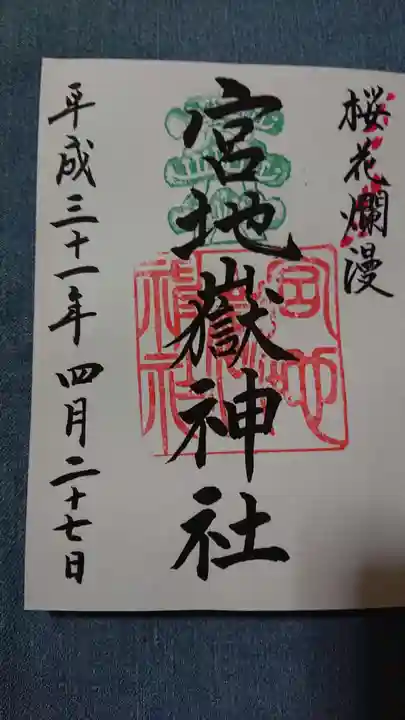 桜花爛漫
宮地嶽神社
平成三十一年 四月二十七日
宮地
神社